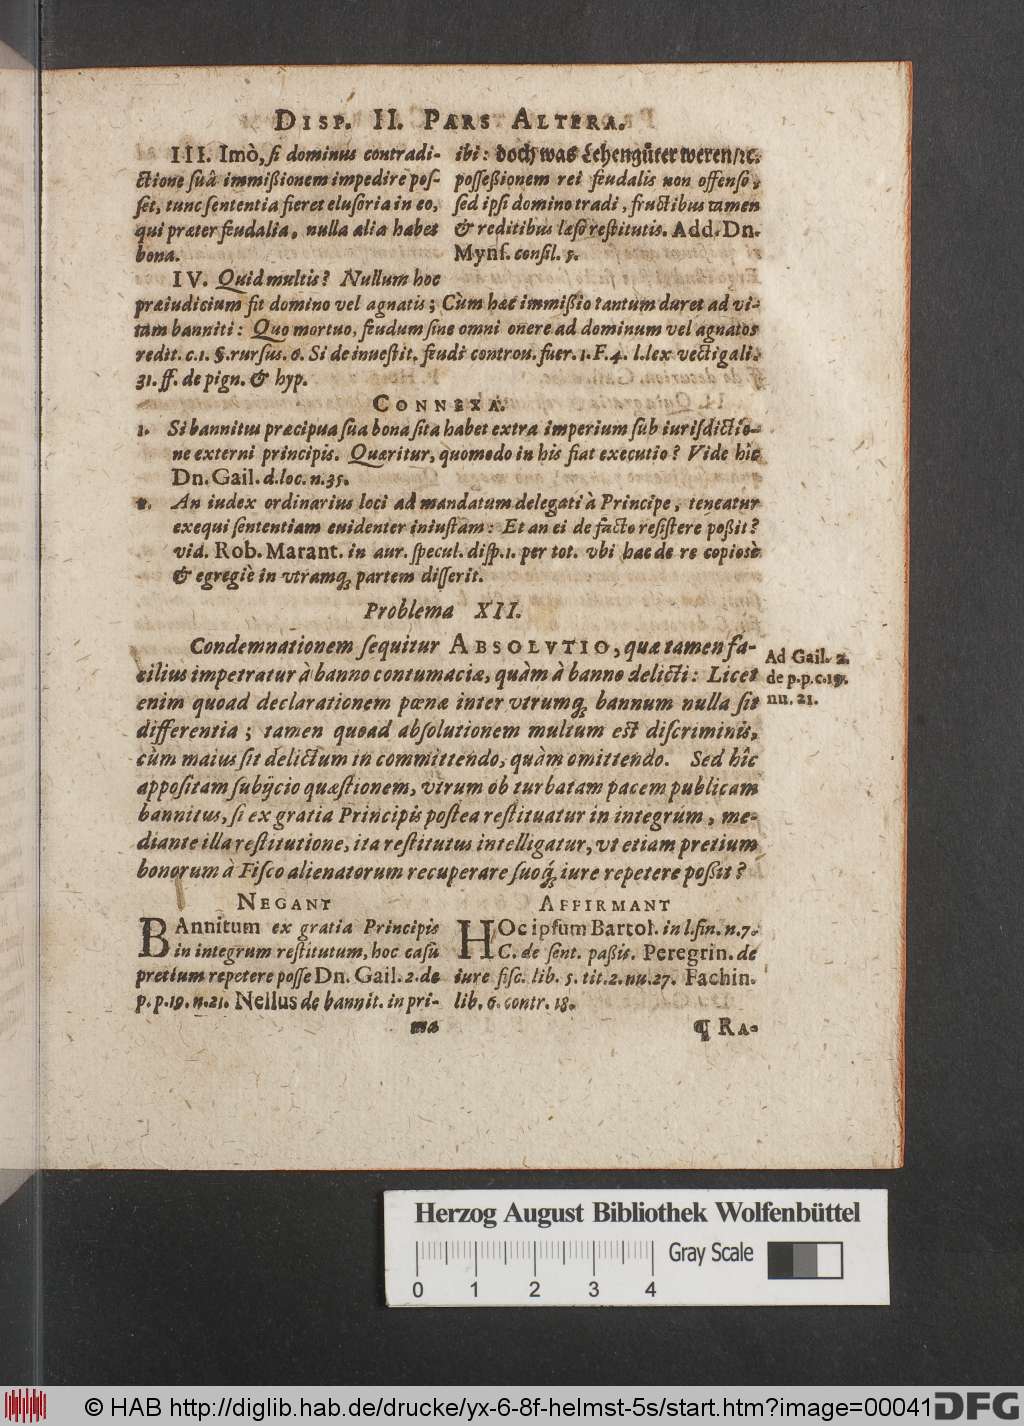 DISP. II. PARS ALTERA.
III. Imò, si dominus contradi-
ctione suâ immißionem impedire pos-
set, tunc sententia fieret elusoria in eo,
qui præter feudalia, nulla alia habet
bona.
IV. Quid multis? Nullum hoc
ibi: doch was Lehengüter weren/ꝛc.
possessionem rei feudalis non offenso,
sed ipsi domino tradi, fructibus tamen
& reditibus læso restitutis. Add. Dn.
Myns. consil. 5.
præiudicium fit domino vel agnatis; Cùm hæc immißio tantum duret ad vi-
tam banniti: Quo mortuo, feudum sine omni onere ad dominum vel agnatos
redit. c.1. §. rursus. 6. Si de inuestit. feudi controu. fuer. 1. F. 4. l. lex vectigali.
31. ff. de pign. & hyp.
CONNEXA.
1. Si bannitus præcipua sua bona sita habet extra imperium sub iurisdictio-
ne externi principis. Quæritur, quomodo in his fiat executio? Vide hîc
Dn. Gail. d. loc. n. 35.
2. An iudex ordinarius loci ad mandatum delegati à Principe, teneatur
exequi sententiam euidenter iniustam: Et an ei de facto resistere poßit?
vid. Rob. Marant. in aur. specul. disp. 1. per tot. vbi hac de re copiosè
& egregiè in vtramq́; partem disserit.
Problema XII.
Condemnationem sequitur ABSOLVTIO, quæ tamen fa-
cilius impetratur à banno contumaciæ, quàm à banno delicti: Licet
enim quoad declarationem pœnæ inter vtrumq́; bannum nulla sit
differentia; tamen quoad absolutionem multum est discriminis,
cùm maius sit delictum in committendo, quàm omittendo. Sed hîc
appositam subijcio quæstionem, vtrum ob turbatam pacem publicam
bannitus, si ex gratia Principis postea restituatur in integrum, me-
diante illa restitutione, ita restitutus intelligatur, vt etiam pretium
bonorum à Fisco alienatorum recuperare suoq́; iure repetere poßit?
Ad Gail. 2.
de p.p.c.19.
nu. 21.
NEGANT
BAnnitum ex gratia Principis
in integrum restitutum, hoc casu
pretium repetere posse Dn. Gail. 2. de
p. p. 19. n. 21. Nellus de bannit. in pri-
ma
AFFIRMANT
HOc ipsum Bartol. in l. fin. n. 7.
C. de sent. paßis. Peregrin. de
iure fisc. lib. 5. tit. 2. nu. 27. Fachin.
lib. 6. contr. 18.
¶ RA-
Herzog August Bibliothek Wolfenbüttel
0 1 2 3 4
Gray Scale
© HAB http://diglib.hab.de/drucke/yx-6-8f-helmst-5s/start.htm?image=00041
DFG